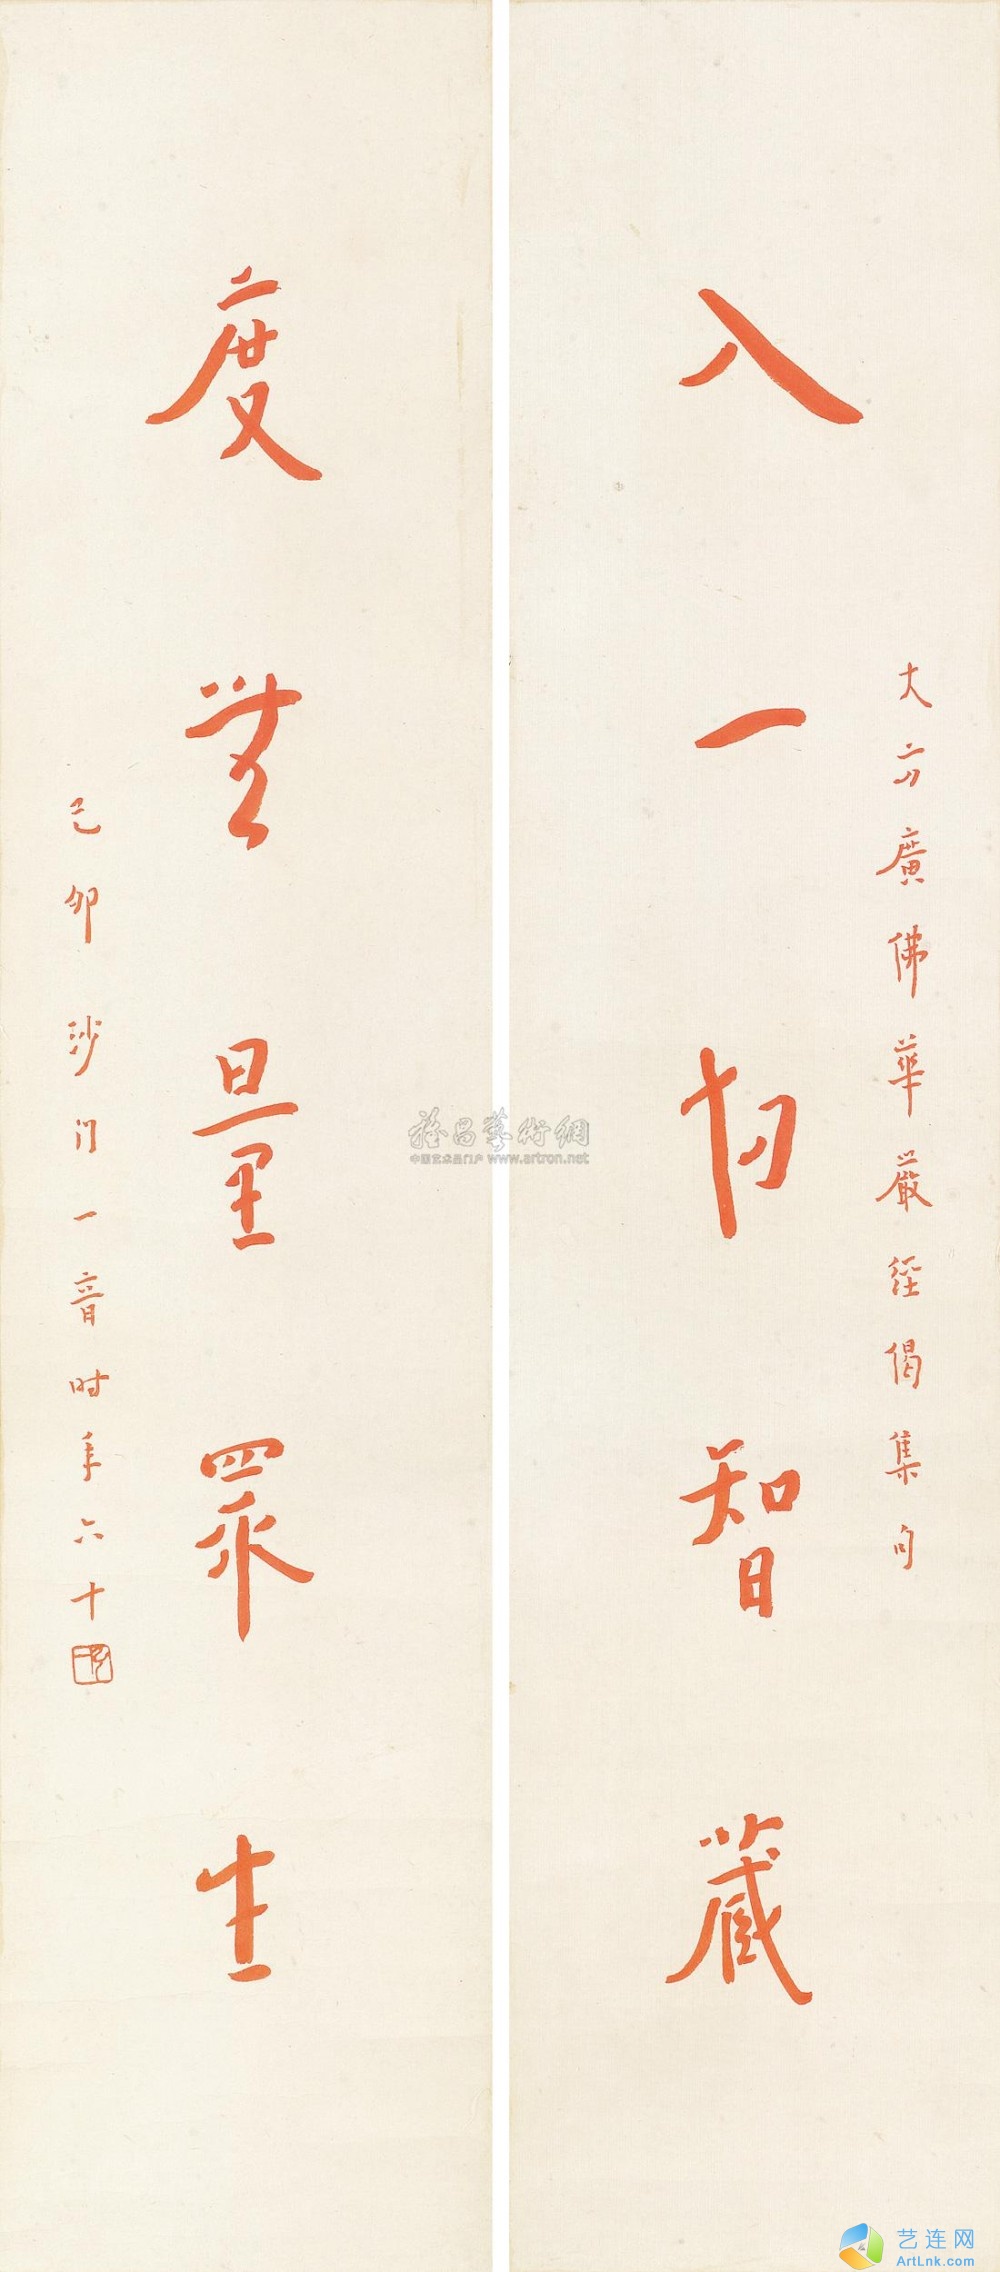 大方廣佛華嚴經偈集句
入一切智藏
度無量眾生
己卯沙门一音时年六十
雅昌藝術網
中国艺术品门户 www.artron.net
艺连网
ArtLnk.com